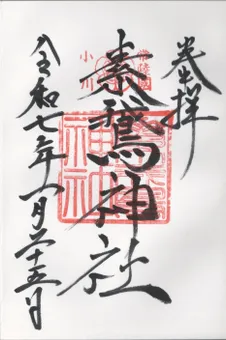 奉拝
常陸國
小川
素鵞神社
令和七年一月二十五日